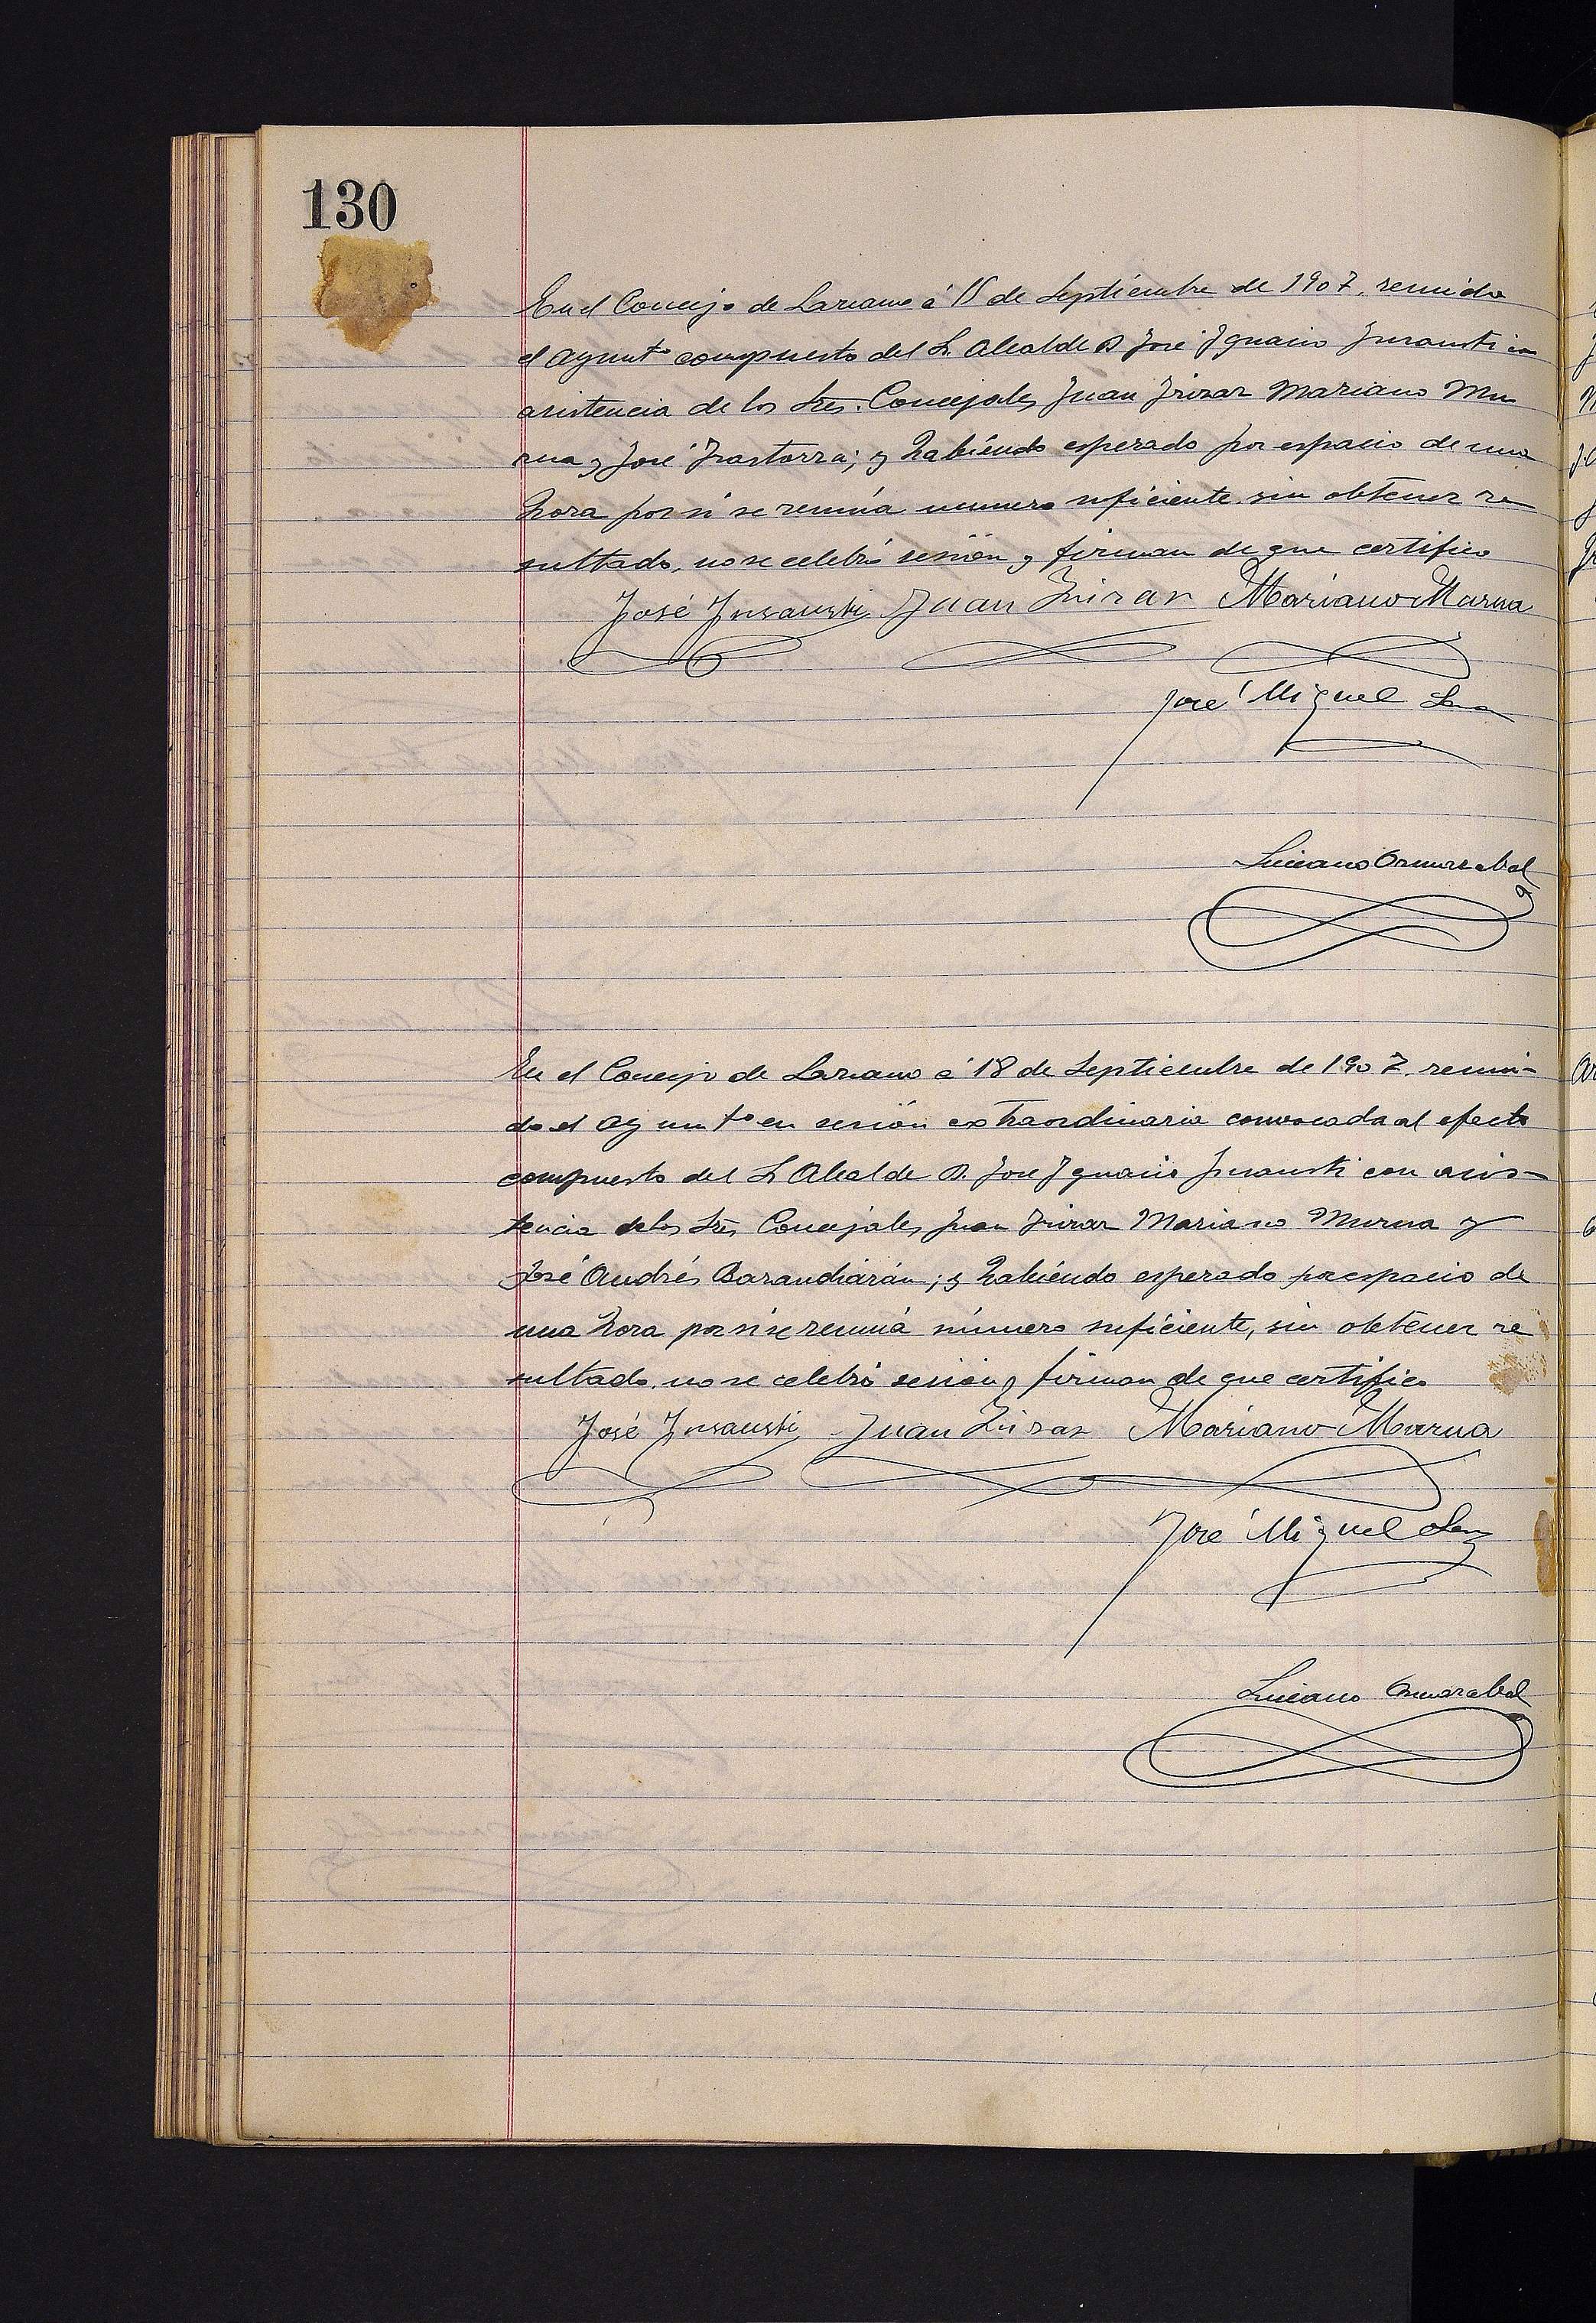 130
En el Concejo de Lazcano á 15 de Septiembre de 1907, reunido
el Ayuntº compuesto del Sr. Alcalde D José Ignacio Insausti con
asistencia de los Sres. Concejales Juan Irizar Mariano Mu
rua y José Irastorza; y habiendo esperado por espacio de una
hora por si se reunía numero suficiente sin obtener re
sultado, no se celebró sesión y firman de que certifico
José Insausti Juan Irizar Mariano Murua
José Miguel
Luciano Ormazabal
En el Concejo de Lazcano á 18 de Septiembre de 1907 reuni-
do el Ayuntº en sesión extraordinaria convocada al efecto
compuesto del Sr Alcalde D. José Ignacio Insausti con asis-
tencia de los Sres Concejales Juan Irizar Mariano Murua y
José Andrés Barandiarán; y habiendo esperado por espacio de
una hora por si se reunía número suficiente, sin obtener re
sultado, no se celebró sesión y firman de que certifico
José Insausti Juan Irizar Mariano Murua
José Miguel
Luciano Ormazabal